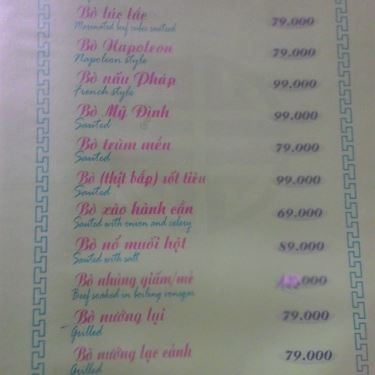 Bò lúc lắc 79.000
Marinated beef cubes sauteed
Bò Napoleon 79.000
Napoleon style
Bò nấu Pháp 99.000
French style
Bò Mỹ Định 99.000
Sauted
Bò trùm mền 79.000
Sauted
Bò (thịt bắp) sốt tiêu 99.000
Sauted
Bò xào hành cần 69.000
Sauted with onion and celery
Bò nổ muối hột 89.000
Sauted with salt
Bò nhúng giấm/mẻ .000
Beef soaked in boiling vinegar
Bò nướng lụi 79.000
Grilled
Bò nướng lạc cảnh 79.000
Grilled